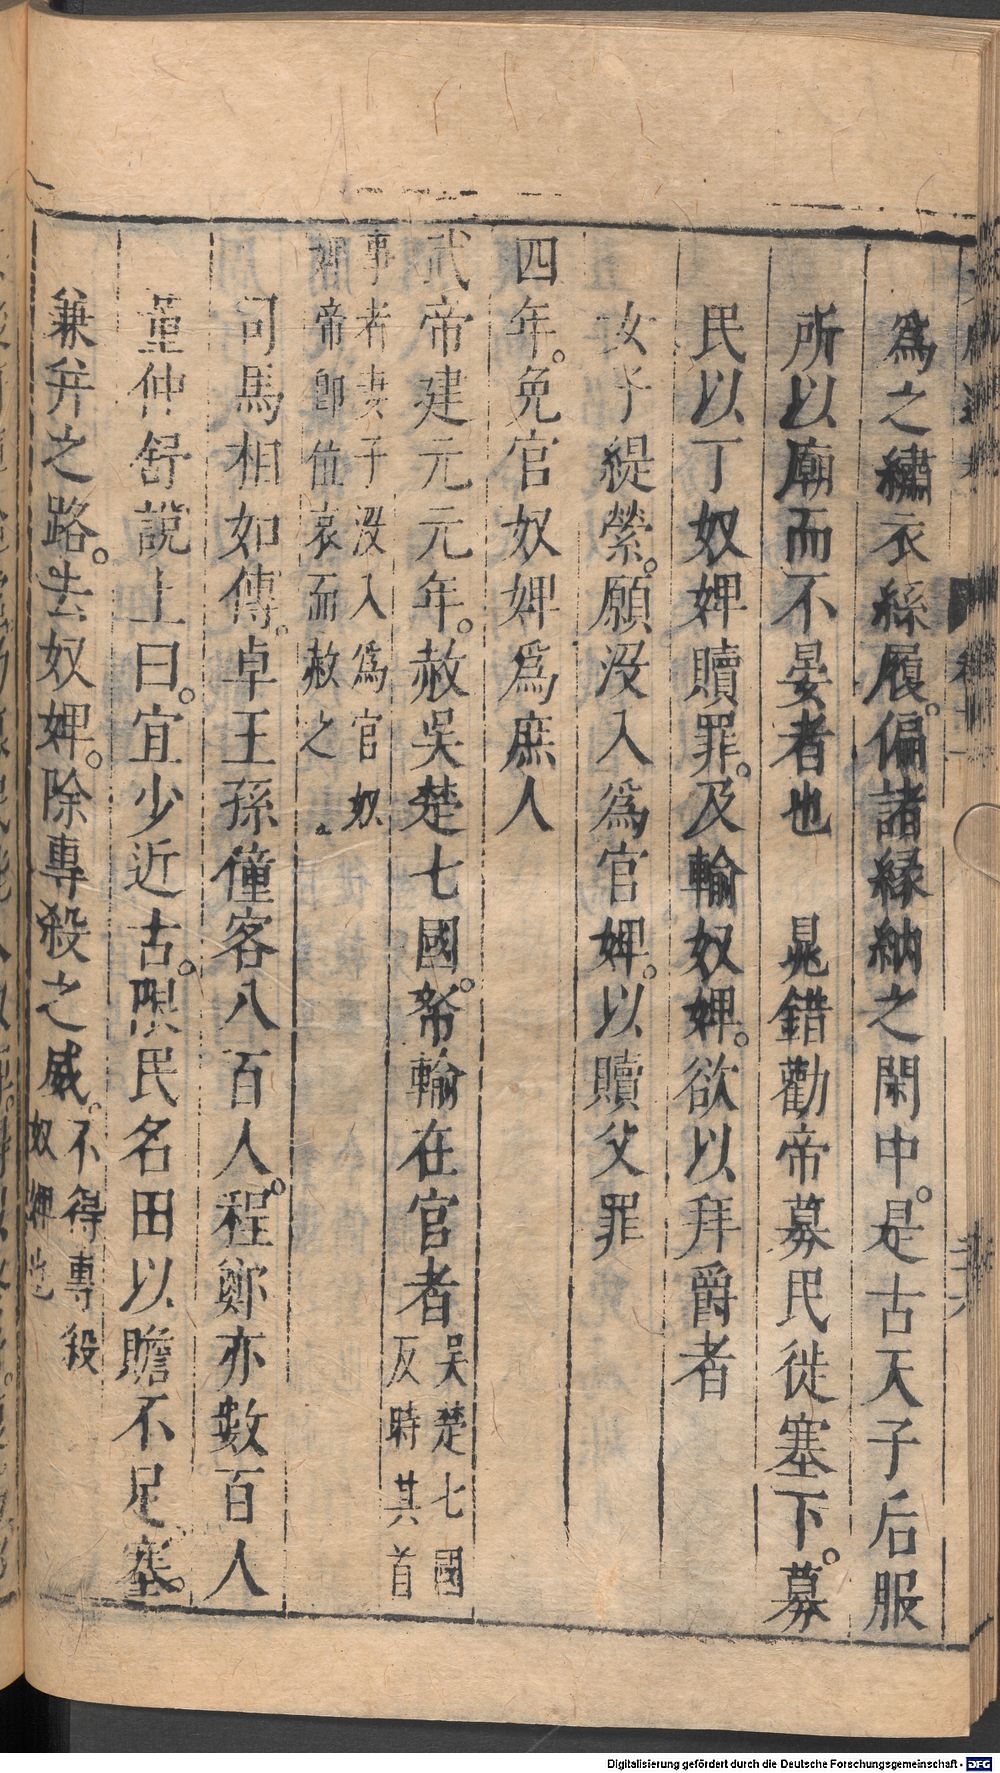 為之繡衣絲履。偏諸縁納之閑中。是古天子后服
所以廟而不晏者也　晁錯勸帝募民徙塞下。募
民以丁奴婢贖罪。及輸奴婢。欲以拜爵者
女子緹縈。願沒入為官婢。以贖父罪
四年。免官奴婢為庶人
武帝建元元年。赦吳楚七國。帑輸在官者
吳楚七國
反時其首
事者妻子沒入為官奴
婢帝即位哀而赦之
司馬相如傳。卓王孫僮客八百人。程鄭亦數百人
董仲舒說上曰。宜少近古。限民名田以贍不足。塞
兼并之路。去奴婢。除專殺之威。
不得專殺
奴婢也
Digitalisierung gefördert durch die Deutsche Forschungsgemeinschaft - DFG